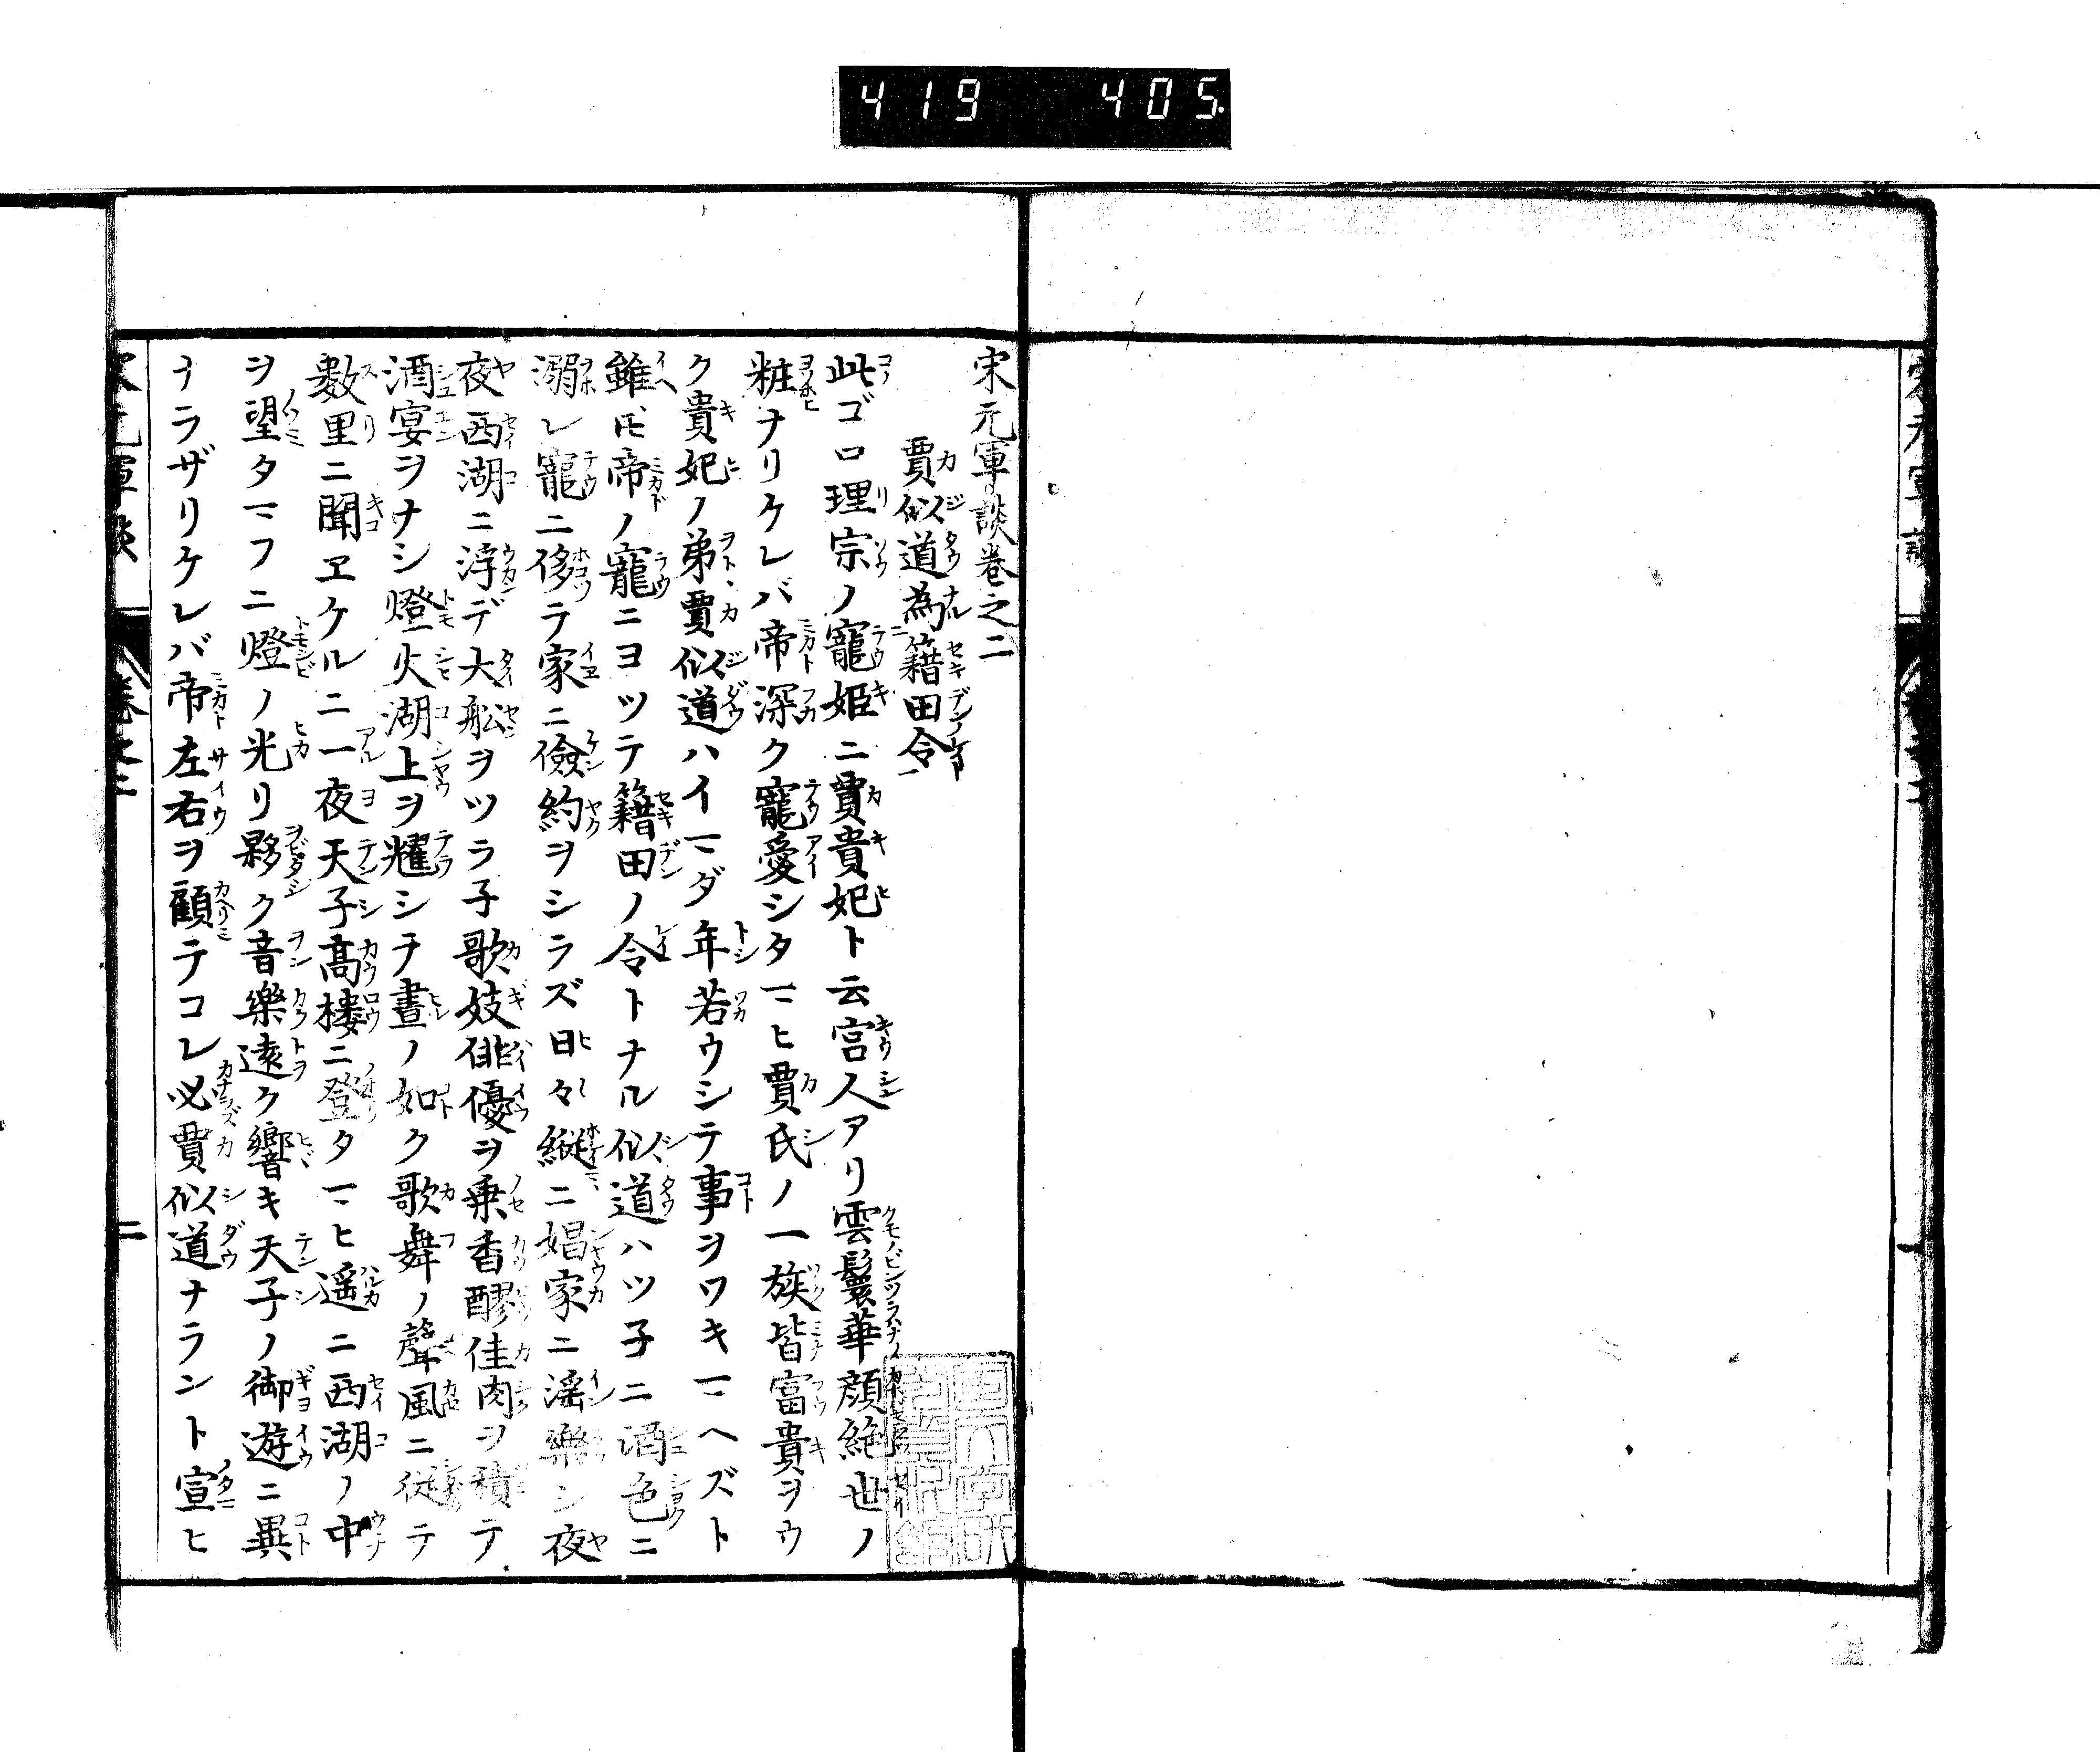 419 405.
宋元軍談巻之二
賈似道為籍田令
此ゴロ理宗ノ寵姫ニ賈貴妃ト云宮人アリ雲鬟華顔絶世ノ
粧ナリケレバ帝深ク寵愛シタマヒ賈氏ノ一族皆富貴ヲウ
ク貴妃ノ弟賈似道ハイマダ年若ウシテ事ヲワキマヘズト
雖ドモ帝ノ寵ニヨツテ籍田ノ令トナル似道ハツ子ニ酒色ニ
溺レ寵ニ侈テ家ニ儉約ヲシラズ日々縦ニ娼家ニ淫樂シ夜
夜西湖ニ浮デ大舩ヲツラ子歌妓俳優ヲ乗香醪佳肉ヲ積テ
酒宴ヲナシ燈火湖上ヲ耀シテ晝ノ如ク歌舞ノ聲風ニ従テ
數里ニ聞ヱケルニ一夜天子髙楼ニ登タマヒ遥ニ西湖ノ中
ヲ望タマフニ燈ノ光リ夥ク音樂遠ク響キ天子ノ御遊ニ異
ナラザリケレバ帝左右ヲ顧テコレ必賈似道ナラント宣ヒ
宋元軍談 巻之二 二